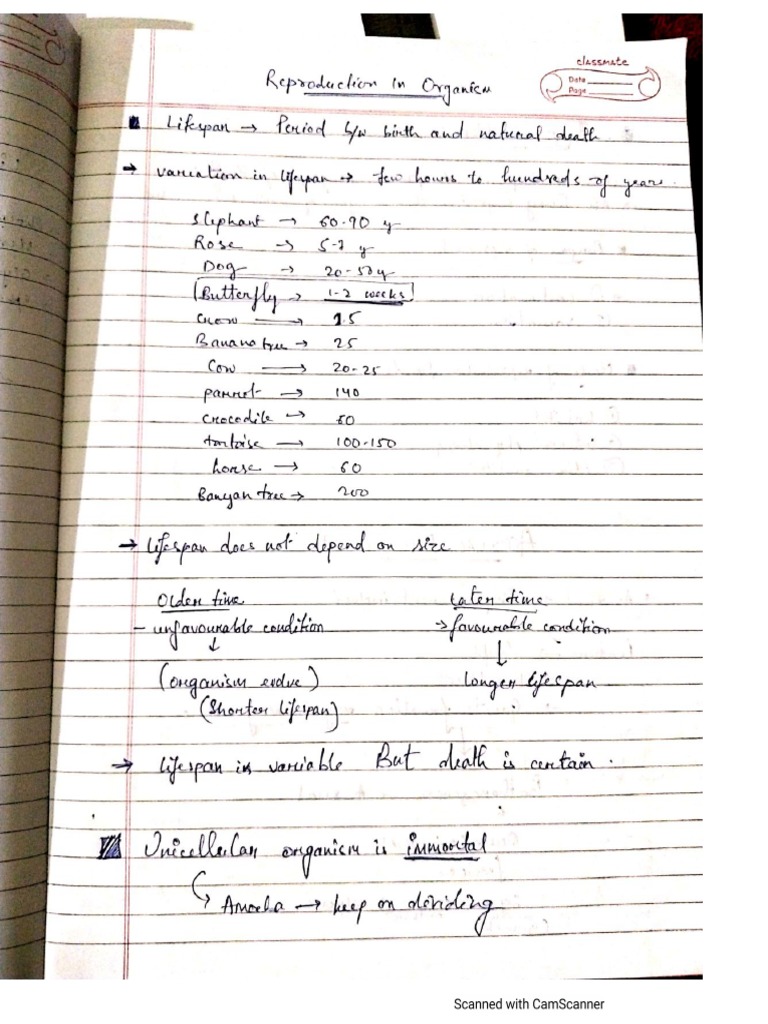 classmate
Date
Page
Reproduction in Organism
Lifespan → Period b/w birth and natural death
→ variation in lifespan → few hours to hundreds of years.
Elephant → 60-90 y
Rose → 5-7 y
Dog → 20-30y
Butterfly → 1-2 weeks
crow → 15
Banana tree → 25
Cow → 20-25
parrot → 140
crocodile → 60
tortoise → 100-150
horse → 60
Banyan tree → 200
→ lifespan does not depend on size
Older time Later time
- unfavourable condition → favourable condition
↓ ↓
(organism evolve) Longer lifespan
(Shorter lifespan)
→ lifespan is variable But death is certain.
Unicellular organism is immortal
↳ Amoeba → keep on dividing
Scanned with CamScanner